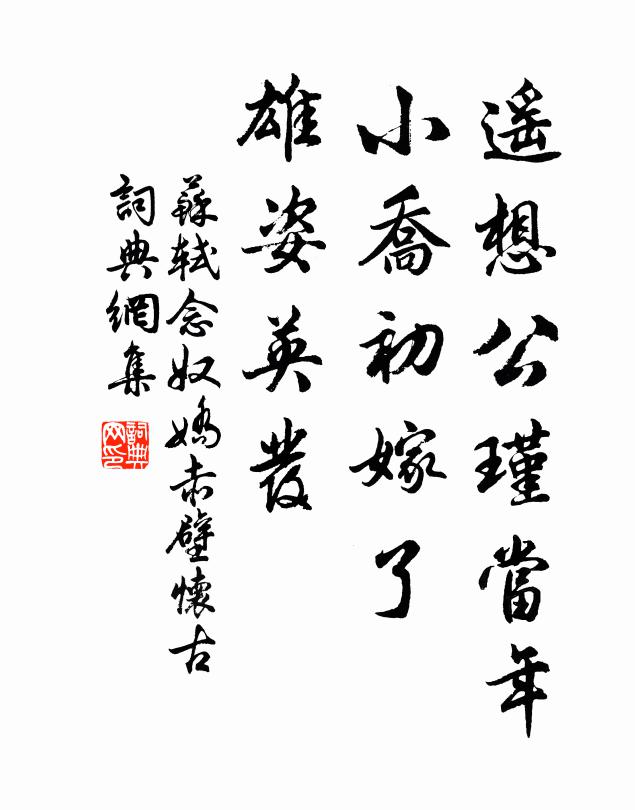 遥想公瑾當年
小喬初嫁了
雄姿英發
蘇軾念奴嬌赤壁懷古
詞典網集
詞典网印